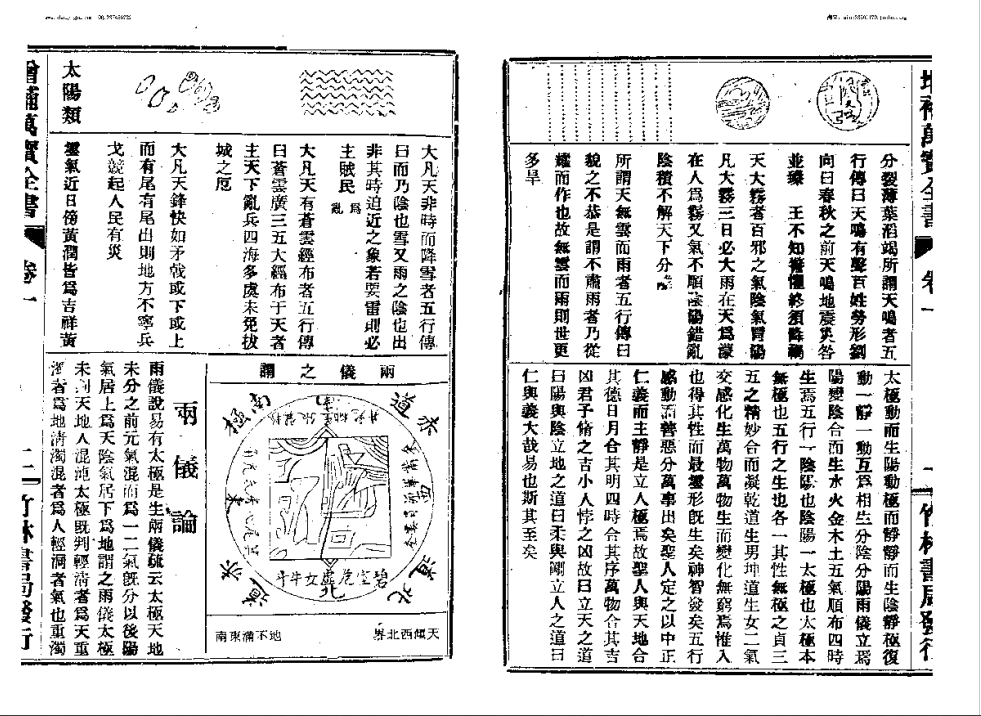 增補萬寶全書
卷一
竹林書局發行
分裂薄葉滔竭所謂天鳴者五
行傳曰天鳴有聲百姓勞形劉
向曰春秋之前天鳴地震災咎
並臻 王不知
天大霧者百邪之氣陰氣冐陽
凡大霧三日必大雨在天爲濛
在人爲霧又氣不順陰陽錯亂
陰積不解天下分
所謂天無雲而雨者五行傳曰
貌之不恭是謂不肅雨者乃從
而作也故無雲而雨則世更
多旱
太極動而生陽動極而靜靜而生陰靜極復
動一靜一動互爲相生分陰分陽兩儀立焉
陽變陰合而生水火金木土五氣順布四時
生焉五行一陰陽也陰陽一太極也太極本
無極也五行之生也各一其性無極之貞三
五之精妙合而凝乾道生男坤道生女二氣
交感化生萬物萬物生而變化無窮焉惟人
也得其性而最靈形旣生矣神智發矣五行
感動而善惡分萬事出矣聖人定之以中正
仁義而主靜是立人極焉故聖人與天地合
其德日月合其明四時合其序萬物合其吉
凶君子脩之吉小人悖之凶故曰立天之道
曰陽與陰立地之道曰柔與剛立人之道曰
仁與義大哉易也斯其至矣
大凡天非時而降雪者五行傳
曰而乃陰也雪又雨之陰也出
非其時迫近之象若要雷則必
主賊民爲亂
大凡天有蒼雲經布者五行傳
曰蒼雲廣三五大經布于天者
主天下亂兵四海多虞未免拔
城之厄
太陽類
大凡天鋒快如矛戟或下或上
而有尾有尾出則地方不寧兵
戈競起人民有災
雲氣近日傍黃潤皆爲吉祥黃
兩儀之謂
赤道
北
碧室危虛女牛斗
天傾西北界
地不滿東南
兩儀論
兩儀說易有太極是生兩儀疏云太極天地
未分之前元氣混而爲一二氣旣分以後陽
氣居上爲天陰氣居下爲地謂之兩儀太極
未向天地人混沌太極旣判輕清者爲天重
濁者爲地清濁混者爲人輕清者氣也重濁
增補萬寶全書
卷一
二
竹林書局發行